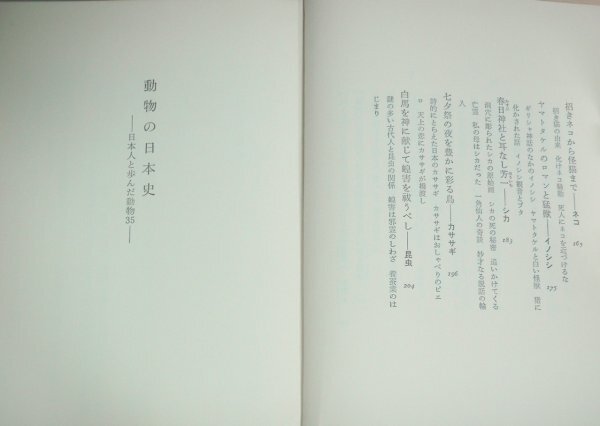 招きネコから怪猫まで――ネコ 165
招き猫の由来　化けネコ騒動　死人にネコを近づけるな
ヤマトタケルのロマンと猛獣――イノシシ 175
ギリシャ神話のなかのイノシシ　ヤマトタケルと白い怪獣　猪に
化かされた話　イノシシ観音とブタ
春日神社と耳なし芳一――シカ 183
銅鐸に彫られたシカの原始画　シカの死の秘密　追いかけてくる
亡霊　私の母はシカだった　一角仙人の奇談　妙才なる説話の輪
人
七夕祭の夜を豊かに彩る鳥――カササギ 196
詩的にとらえた日本のカササギ　カササギはおしゃべりのピエ
ロ　天上の恋にカササギが橋渡し
白馬を神に献じて蝗害を祓うべし――昆虫 204
謎の多い古代人と昆虫の関係　蝗害は邪霊のしわざ　養蚕業のは
じまり
動物の日本史
――日本人と歩んだ動物35――